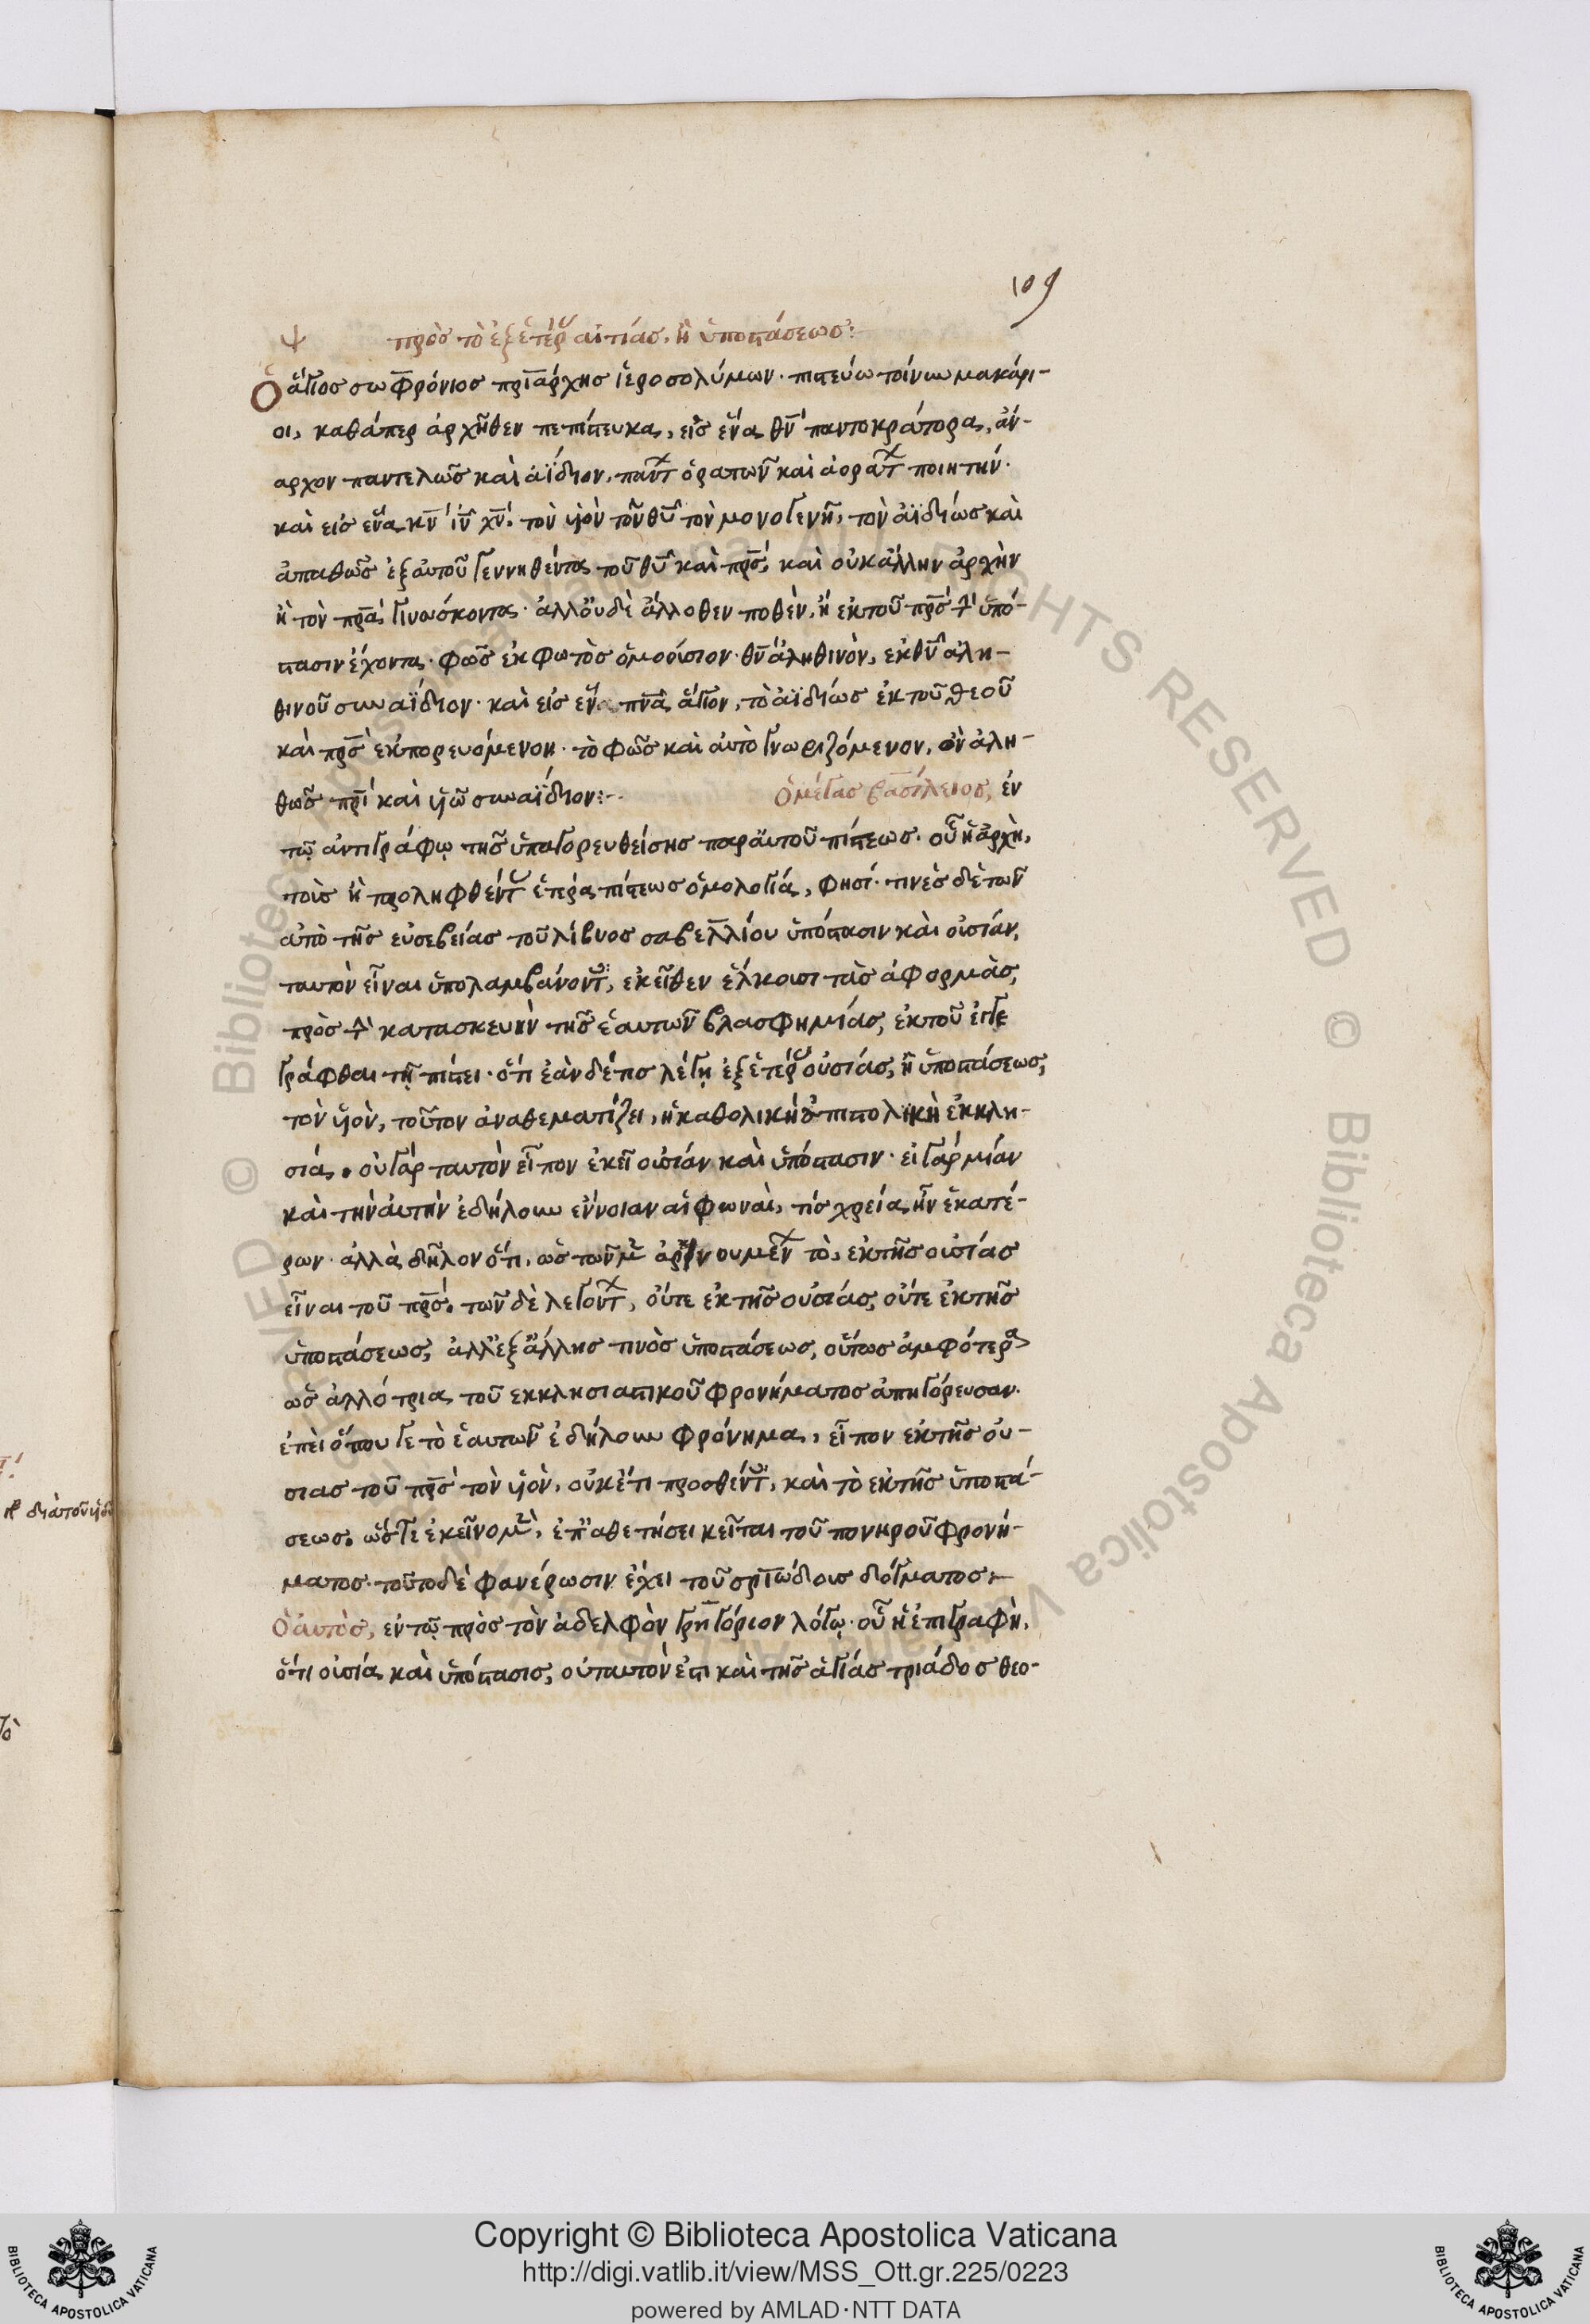 109
ψ πρὸς τὸ ἐξ ἑτέρου αἰτίας, ἢ ὑποστάσεως:
Ὁ ἅγιος σωφρόνιος πρϊάρχης ἱεροσολύμων· πιστεύω τοίνυν μακάρι-
οι, καθάπερ ἀρχῆθεν πεπίστευκα, εἰς ἕνα θν̅ παντοκράτορα, ἄν-
αρχον παντελῶς καὶ ἀΐδιον, πάντων ὁρατῶν καὶ ἀοράτων ποιητήν·
καὶ εἰς ἕνα κν̅ ιν̅ χν̅. τὸν υἱὸν τοῦ θυ̅ τὸν μονογενῆ, τὸν ἀϊδίως καὶ
ἀπαθῶς ἐξ αὐτοῦ γεννηθέντα τοῦ θυ̅ καὶ πρς̅, καὶ οὐκ ἄλλην ἀρχὴν
ἢ τὸν πρα̅ γινώσκοντα· ἀλλ' οὐδὲ ἄλλοθεν ποθὲν, ἢ ἐκ τοῦ πρς̅ τὴν ὑπό-
στασιν ἔχοντα· φῶς ἐκ φωτὸς ὁμοούσιον· θν̅ ἀληθινὸν, ἐκ θυ̅ ἀλη-
θινοῦ συναΐδιον· καὶ εἰς ἕνα πνα̅ ἅγιον, τὸ ἀϊδίως ἐκ τοῦ θεοῦ
καὶ πρς̅ ἐκπορευόμενον· τὸ φῶς καὶ αὐτὸ γνωριζόμενον, ὂν ἀλη-
θῶς πρι̅ καὶ υἱῶ συναΐδιον:- Ὁ μέγας βασίλειος, ἐν
τῷ ἀντιγράφῳ τῆς ὑπαγορευθείσης παρ' αὐτοῦ πίστεως. οὗ ἡ ἀρχὴ,
τοὶς ἢ προληφθέντας ἑτέρα πίστεως ὁμολογία, φησί· τινὲς δὲ τῶν
ἀπὸ τῆς εὐσεβείας τοῦ λίβυος σαβελλίου ὑπόστασιν καὶ οὐσίαν,
ταυτὸν εἶναι ὑπολαμβάνοντες, ἐκεῖθεν ἕλκουσι τὰς ἀφορμὰς,
πρὸς τὴν κατασκευὴν τῆς ἑαυτῶν βλασφημίας, ἐκ τοῦ ἐγγε
γράφθαι τῇ πίστει· ὅτι ἐὰν δέ τις λέγῃ ἐξ ἑτέρου οὐσίας, ἢ ὑποστάσεως,
τὸν υἱὸν, τοῦτον ἀναθεματίζει, ἡ καθολικὴ ἀποστολικὴ ἐκκλη-
σία. οὐ γὰρ ταυτὸν εἶπον ἐκεῖ οὐσίαν καὶ ὑπόστασιν· εἰ γὰρ μίαν
καὶ τὴν αὐτὴν ἐδήλουν ἔννοιαν αἱ φωναὶ, τίς χρεία ἦν ἑκατέ-
ρων· ἀλλὰ δῆλον ὅτι, ὡς τῶν μὲν ἀρνουμένων τὸ, ἐκ τῆς οὐσίας
εἶναι τοῦ πρς̅. τῶν δὲ λεγόντων, οὔτε ἐκ τῆς οὐσίας, οὔτε ἐκ τῆς
ὑποστάσεως, ἀλλ' ἐξ ἄλλης τινὸς ὑποστάσεως, οὕτως ἀμφότερα
ὡς ἀλλότρια τοῦ ἐκκλησιαστικοῦ φρονήματος ἀπηγόρευσαν.
ἐπεὶ ὅπου γε τὸ ἑαυτῶν ἐδήλουν φρόνημα, εἶπον ἐκ τῆς οὐ-
σιας τοῦ πρς̅ τὸν υἱὸν, οὐκέτι προσθέντες, καὶ τὸ ἐκ τῆς ὑποστά-
σεως. ὥστε ἐκεῖνο μὲν, ἐπ' ἀθετήσει κεῖται τοῦ πονηροῦ φρονή-
ματος· τοῦτο δὲ φανέρωσιν ἔχει τοῦ σρι̅ώδους δόγματος:-
Ὁ αὐτὸς, ἐν τῷ πρὸς τὸν ἀδελφὸν γρηγόριον λόγῳ· οὗ ἡ ἐπιγραφὴ,
ὅτι οὐσία καὶ ὑπόστασις, οὐ ταυτὸν ἐστι καὶ τῆς ἁγίας τριάδος θεο-
διὰ τοῦ υἱοῦ
Copyright © Biblioteca Apostolica Vaticana
http://digi.vatlib.it/view/MSS_Ott.gr.225/0223
powered by AMLAD·NTT DATA
BIBLIOTECA APOSTOLICA VATICANA
BIBLIOTECA APOSTOLICA VATICANA